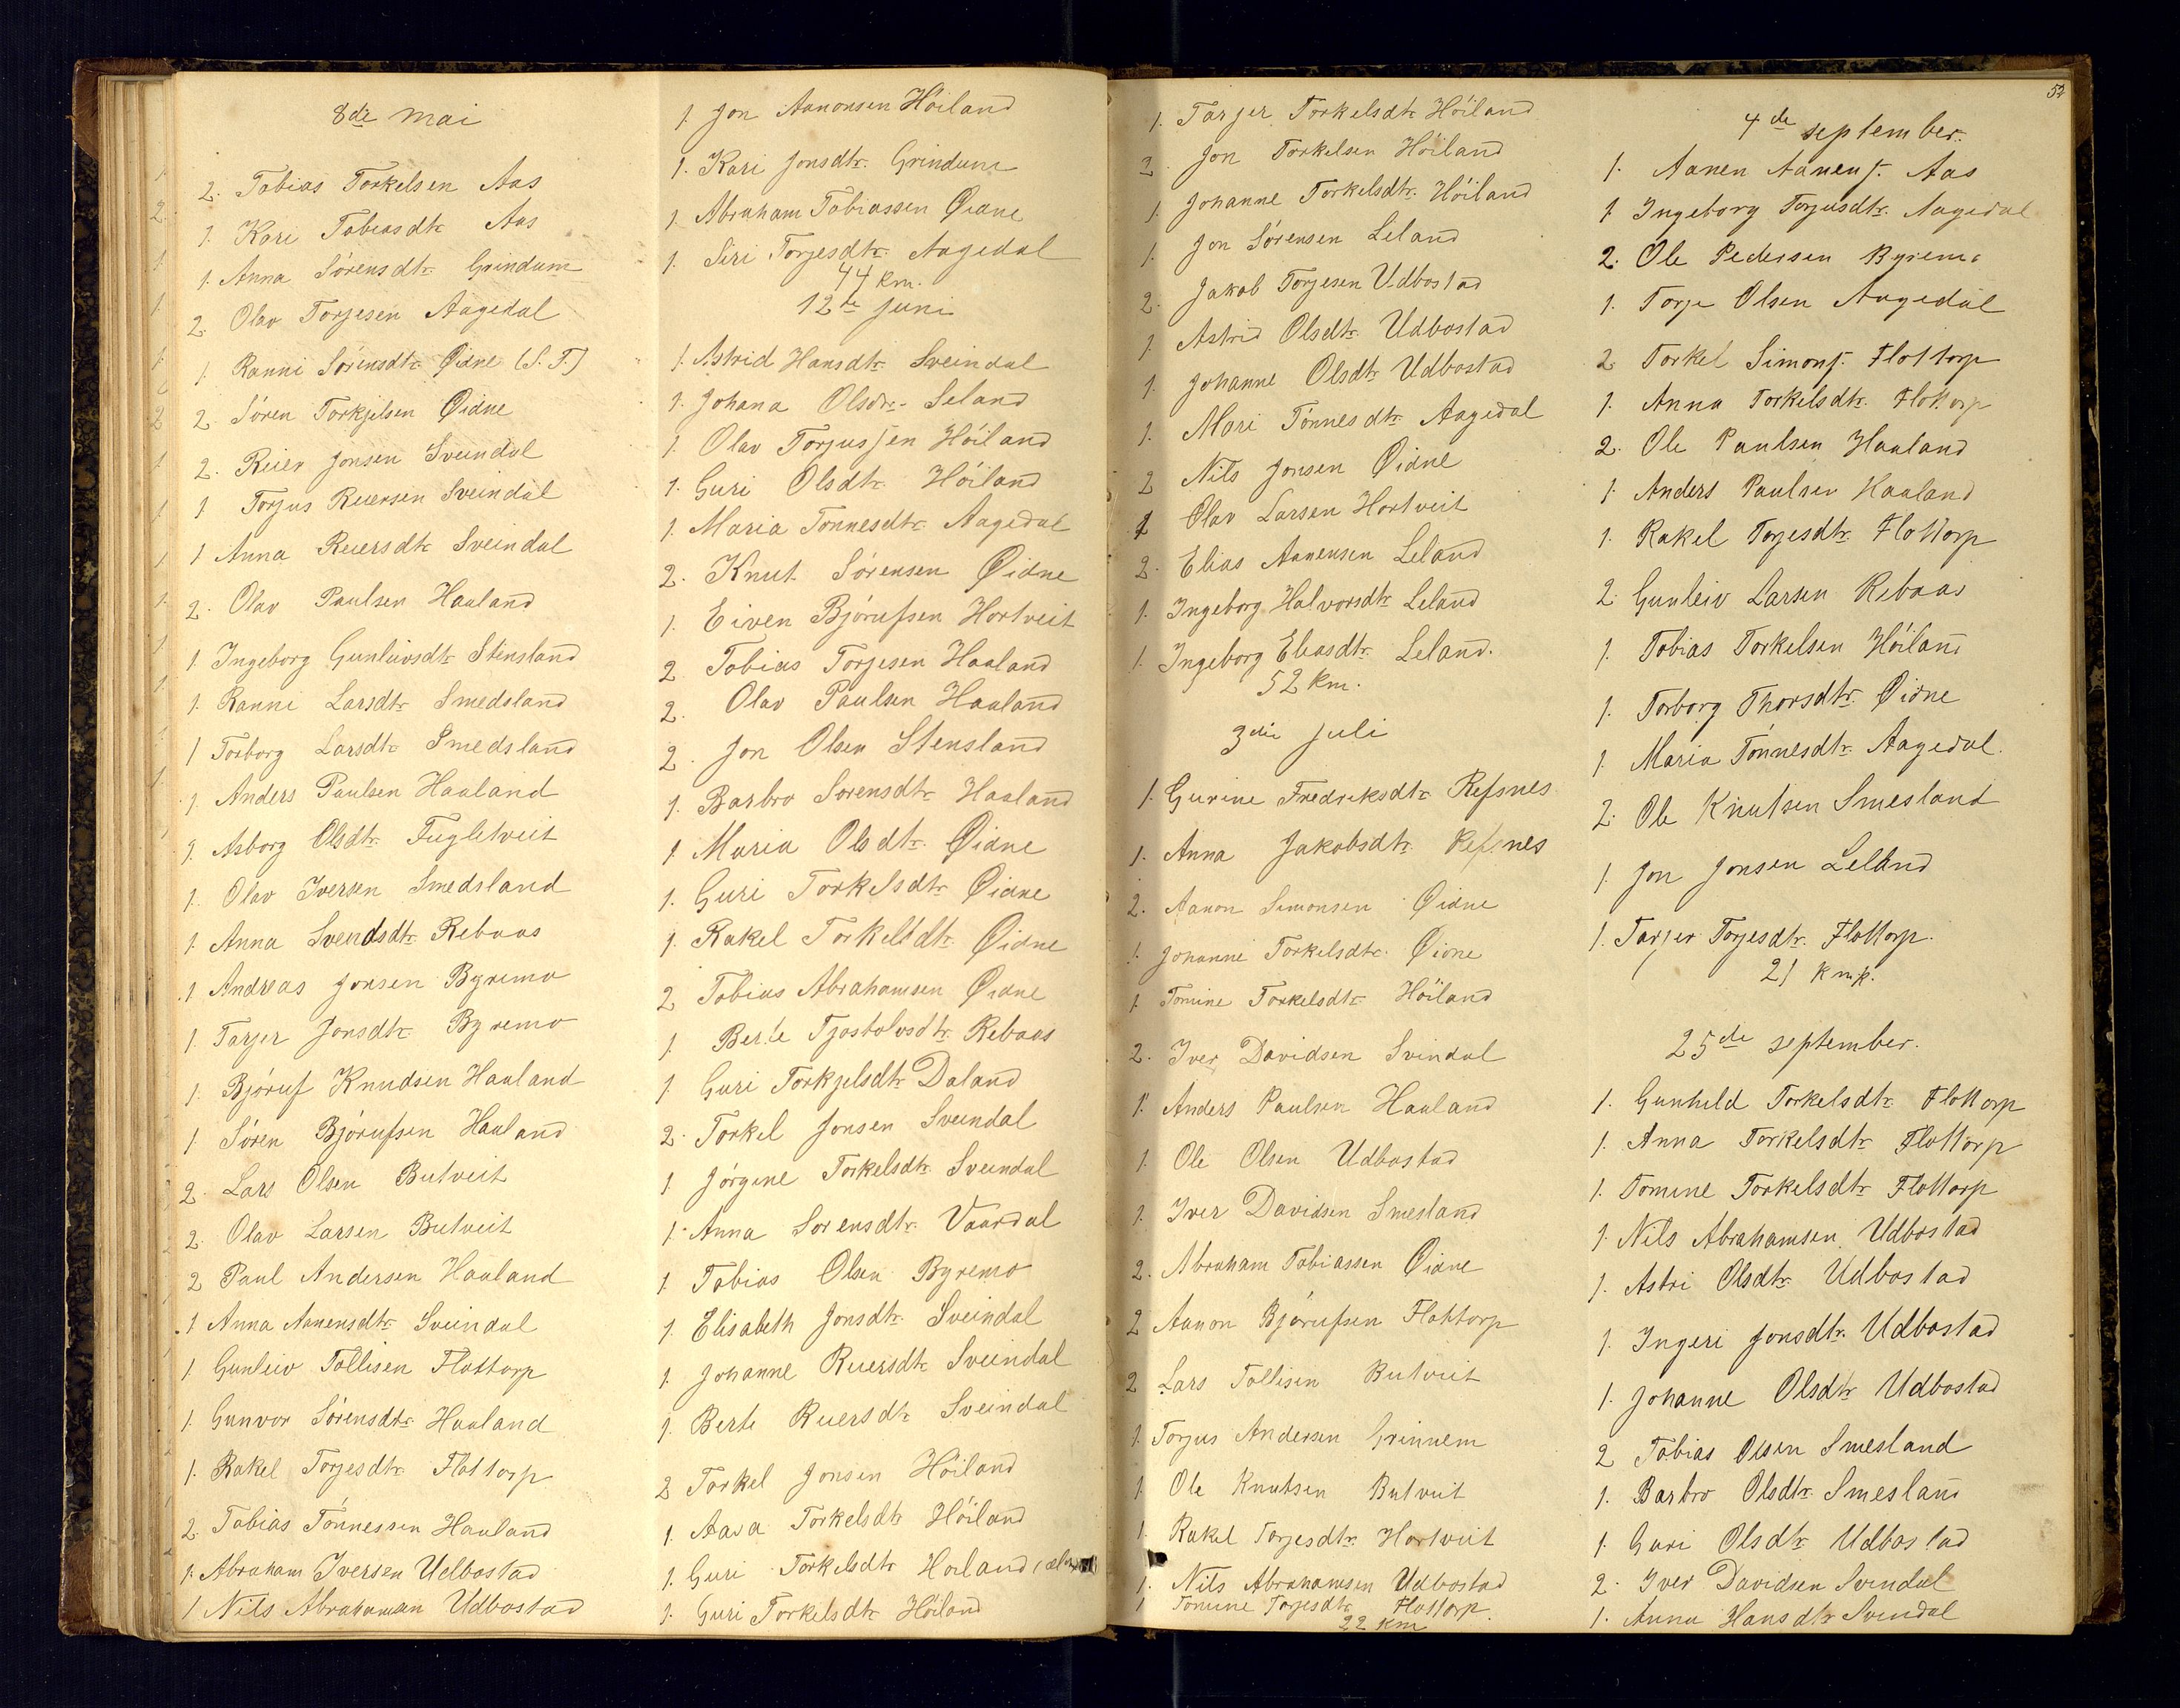 8de mai
2. Tobias Torkelsen Aas
1. Kari Tobiasdtr Aas
1. Anna Sørensdtr. Grindum
2. Olav Torjesen Aagedal
1. Ranni Sørensdtr. Øidne (S. T.)
2. Søren Torkjelsen Øidne
2. Reier Jonsen Sveindal
1 Torjus Reiersen Sveindal
1 Anna Reiersdtr Sveindal
2. Olav Paulsen Haaland
1. Ingeborg Gunleivsdtr Stensland
1. Ranni Larsdtr Smedsland
1 Torborg Larsdtr Smedsland
1. Anders Paulsen Haaland
1. Asborg Olsdtr. Fugletveit
1. Olav Iversen Smedsland
1. Anna Svendsdtr. Rebaas
1 Andreas Jonsen Byremo
1. Tarjer Jonsdtr. Byremo
1. Bjøruf Knudsen Haaland
1 Søren Bjørufsen Haaland
2. Lars Olsen Butveit
2. Olav Larsen Butveit
2 Paul Andersen Haaland
1 Anna Aanensdtr. Sveindal
1. Gunleiv Tollisen Flottorp
1. Gunvor Sørensdtr. Haaland
1. Rakel Torjesdtr. Flottorp
2. Tobias Tønnessen Haaland
1. Abraham Iversen Udbostad
1 Nils Abrahamsen Udbostad
1. Jon Aanonsen Höiland
1. Kari Jonsdtr. Grindum
1. Abraham Tobiassen Øidne
1. Siri Torjesdtr. Aagedal
44 km.
12te juni
1. Astrid Hansdtr. Sveindal
1. Johana Olsdtr. Seland
1. Olav Torjussen Höiland
1. Guri Olsdtr. Höiland
1. Maria Tønnesdtr. Aagedal
2. Knut Sørensen Øidne
1. Eiven Bjørufsen Hortveit
2 Tobias Torjesen Haaland
2. Olav Paulsen Haaland
2. Jon Olsen Stensland
1. Barbro Sørensdtr. Haaland
1. Maria Olsdtr. Øidne
1. Guri Torkelsdtr. Øidne
1. Rakel Torkelsdtr. Øidne
2 Tobias Abrahamsen Øidne
1. Berte Tjostolvsdtr. Rebaas
1. Guri Torkjelsdtr Daland
2. Torkel Jonsen Sveindal
1. Jørgine Torkelsdtr. Sveindal
1. Anna Sørensdtr. Vaardal
1. Tobias Olsen Byremo
1. Elisabeth Jonsdtr. Sveindal
1. Johanne Reiersdtr Sveindal
1. Berte Reiersdtr Sveindal
2 Torkel Jonsen Höiland
1. Aasa Torkelsdtr Höiland
1. Guri Torkelsdtr Höiland
1. Guri Torkelsdtr Höiland
52
1. Tarjer Torkelsdtr Höiland
2. Jon Torkelsen Höiland
1. Johanne Torkelsdtr. Höiland
1. Jon Sørensen Leland
2. Jakob Torjesen Udbostad
1 Astrid Olsdtr. Udbostad
1. Johanne Olsdtr Udbostad
1. Mari Tønnesdtr. Aagedal
2 Nils Jonsen Øidne
1 Olav Larsen Hortveit
2. Elias Aanensen Leland
1. Ingeborg Halvorsdtr Leland
1. Ingeborg Eliasdtr. Leland.
52 km.
3die juli
1. Gurine Fredriksdtr Refsnes
1. Anna Jakobsdtr. Refsnes
2. Aanon Simonsen Øidne
1. Johanne Torkelsdtr. Øidne
1. Tomine Torkelsdtr. Höiland
2. Iver Davidsen Svindal
1. Anders Paulsen Haaland
1. Ole Olsen Udbostad
1. Iver Davidsen Smesland
2. Abraham Tobiassen Øidne
2 Aanon Bjørufsen Flottorp
2 Lars Tollisen Butveit
1. Torjus Andersen Grinnem
1. Ole Knutsen Butveit
1. Rakel Torjesdtr. Hortveit
1. Nils Abrahamsen Udbostad
1 Tomine Torjesdtr Flottorp.
22 km
4de september.
1. Aanen Aanens. Aas
1 Ingeborg Torjusdtr. Aagedal
2. Ole Pedersen Byremo
1. Torje Olsen Aagedal
2 Torkel Simons. Flottorp
1. Anna Torkelsdtr. Flottorp
2. Ole Paulsen Haaland
1. Anders Paulsen Haaland
1. Rakel Torjesdtr. Flottorp
2. Gunleiv Larsen Rebaas
1. Tobias Torkelsen Höiland
1. Torborg Thorsdtr. Øidne
1. Maria Tønnesdtr. Aagedal.
2. Ole Knutsen Smesland
1. Jon Jonsen Leland
1. Tarjer Torjesdtr. Flottorp.
21 kmk.
25de september.
1. Gunhild Torkelsdtr. Flottorp
1. Anna Torkelsdtr. Flottorp
1. Tomine Torkelsdtr Flottorp
1. Nils Abrahamsen Udbostad
1. Astri Olsdtr. Udbostad
1. Ingeri Jonsdtr. Udbostad
1. Johanne Olsdtr Udbostad
2 Tobias Olsen Smesland
1. Barbro Olsdtr. Smesland
1. Guri Olsdtr Udbostad
2. Iver Davidsen Svindal
1. Anna Hansdtr Svendal